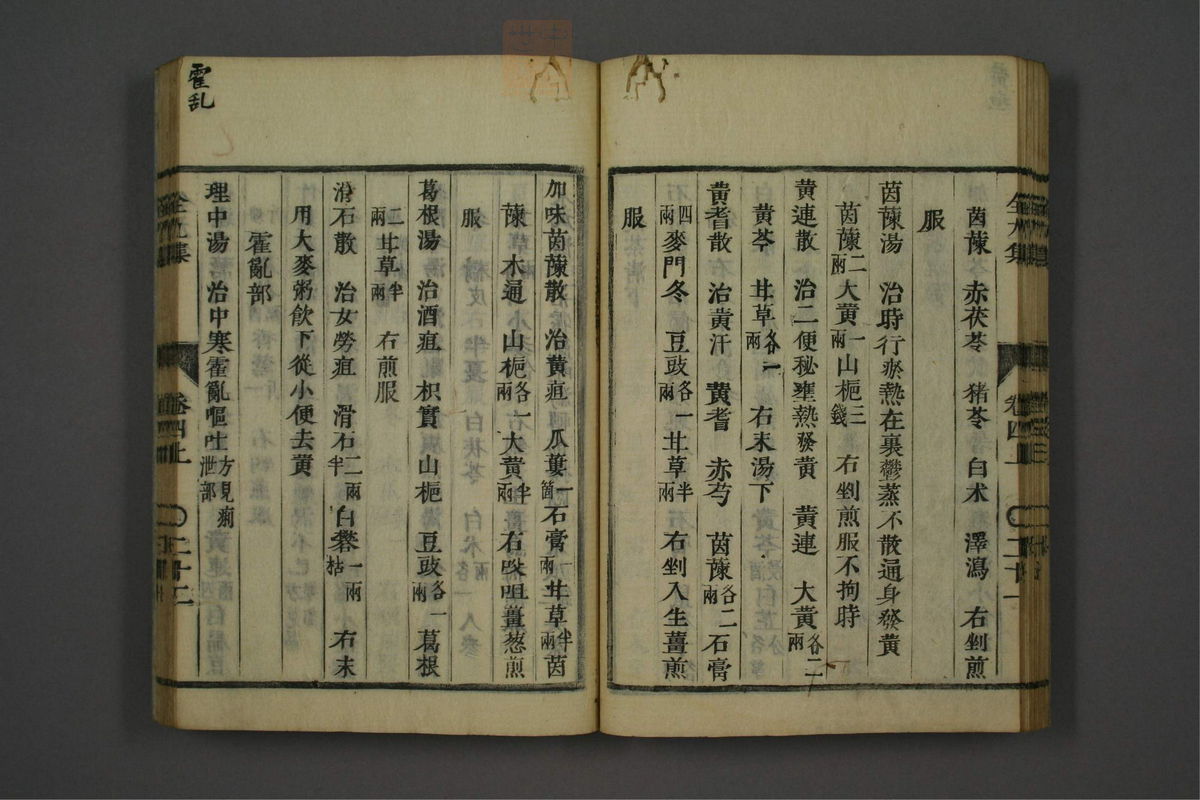 茵蔯　赤茯苓　猪苓　白朮　澤瀉　右剉煎
服
茵蔯湯　治時行瘀熱在裏鬱蒸不散通身發黃
茵蔯二兩大黃一兩山梔三錢　右剉煎服不拘時
黃連散　治二便秘壅熱發黃　黃連　大黃各二兩
黃芩　甘草各一兩　右末湯下
黃耆散　治黃汗　黃耆　赤芍　茵蔯各二兩石膏
四兩麥門冬　豆豉各一兩甘草半兩　右剉入生薑煎
服
全九集　卷四上　二十一
加味茵蔯散　治黃疸　瓜蔞一箇石膏一兩甘草半兩茵
蔯　木通　山梔各一兩大黃半兩　右㕮咀薑葱煎
服
葛根湯　治酒疸　枳實　山梔　豆豉各一兩葛根
二兩甘草半兩　右煎服
滑石散　治女勞疸　滑石二兩半白礬一兩枯　右末
用大麥粥飲下從小便去黃
霍亂部
理中湯　治中寒霍亂嘔吐方見痢泄部
全九集　卷四上　二十二
霍乱